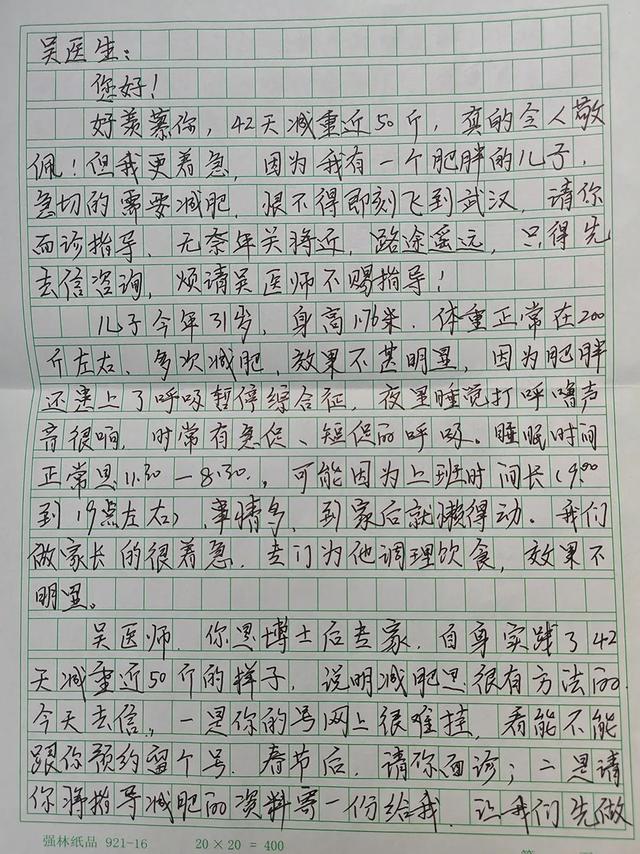 吴医生:
您好!
好羡慕你,42天减重近50斤,真的令人敬
佩!但我更着急,因为我有一个肥胖的儿子,
急切的需要减肥,恨不得即刻飞到武汉,请你
面诊指导,无奈年关将近,路途遥远,只得先
去信咨询,烦请吴医师不赐指导!
儿子今年31岁,身高1.76米,体重正常在200
斤左右,多次减肥,效果不甚明显,因为肥胖
还患上了呼吸暂停综合征,夜里睡觉打呼噜声
音很响,时常有急促、短促的呼吸。睡眠时间
正常是11:30—8:30,可能因为上班时间长(9:00
到19点左右),事情多,到家后就懒得动。我们
做家长的很着急,专门为他调理饮食,效果不
明显。
吴医师,你是博士后专家,自身实践了42
天减重近50斤的样子,说明减肥是很有方法的。
今天去信,一是你的号网上很难挂,看能不能
跟你预约留个号,春节后,请你面诊;二是请
你将指导减肥的资料寄一份给我,让我们先做
强林纸品 921-16 20×20=400